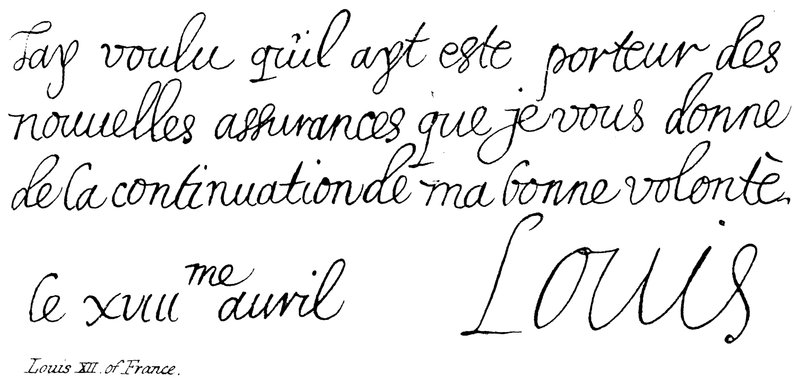 Jay voulu qu'il ayt este porteur des
nouuelles assurances que je vous donne
de la continuation de ma bonne volontè.
Le XVIII me auvril
Louis
Louis XII. of France.